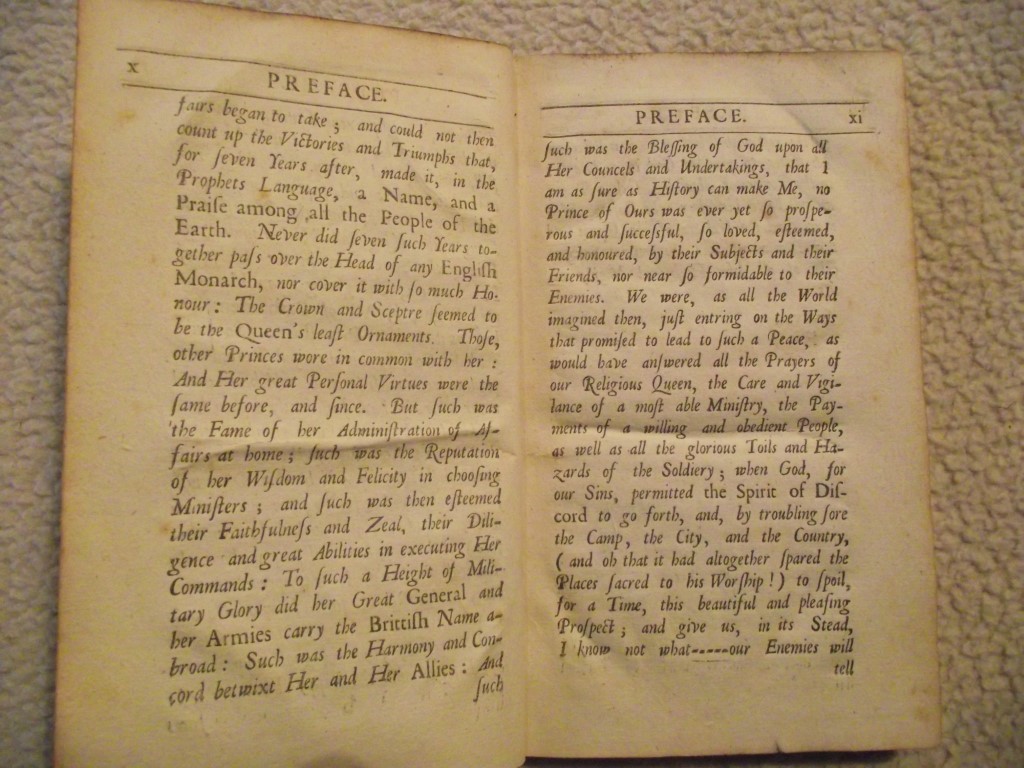 x
PREFACE.
fairs began to take; and could not then
count up the Victories and Triumphs that,
for ſeven Years after, made it, in the
Prophets Language, a Name, and a
Praiſe among all the People of the
Earth. Never did ſeven ſuch Years to-
gether paſs over the Head of any Engliſh
Monarch, nor cover it with ſo much Ho-
nour: The Crown and Sceptre ſeemed to
be the Queen's leaſt Ornaments. Thoſe,
other Princes wore in common with her:
And Her great Perſonal Virtues were the
ſame before, and ſince. But ſuch was
the Fame of her Adminiſtration of Af-
fairs at home; ſuch was the Reputation
of her Wiſdom and Felicity in chooſing
Miniſters; and ſuch was then eſteemed
their Faithfulneſs and Zeal, their Dili-
gence and great Abilities in executing Her
Commands: To ſuch a Height of Mili-
tary Glory did her Great General and
her Armies carry the Brittiſh Name a-
broad: Such was the Harmony and Con-
cord betwixt Her and Her Allies: And
ſuch
PREFACE.
xi
ſuch was the Bleſſing of God upon all
Her Councels and Undertakings, that I
am as ſure as Hiſtory can make Me, no
Prince of Ours was ever yet ſo proſpe-
rous and ſucceſsful, ſo loved, eſteemed,
and honoured, by their Subjects and their
Friends, nor near ſo formidable to their
Enemies. We were, as all the World
imagined then, juſt entring on the Ways
that promiſed to lead to ſuch a Peace, as
would have anſwered all the Prayers of
our Religious Queen, the Care and Vigi-
lance of a moſt able Miniſtry, the Pay-
ments of a willing and obedient People,
as well as all the glorious Toils and Ha-
zards of the Soldiery; when God, for
our Sins, permitted the Spirit of Diſ-
cord to go forth, and, by troubling ſore
the Camp, the City, and the Country,
(and oh that it had altogether ſpared the
Places ſacred to his Worſhip!) to ſpoil,
for a Time, this beautiful and pleaſing
Proſpect; and give us, in its Stead,
I know not what-----our Enemies will
tell